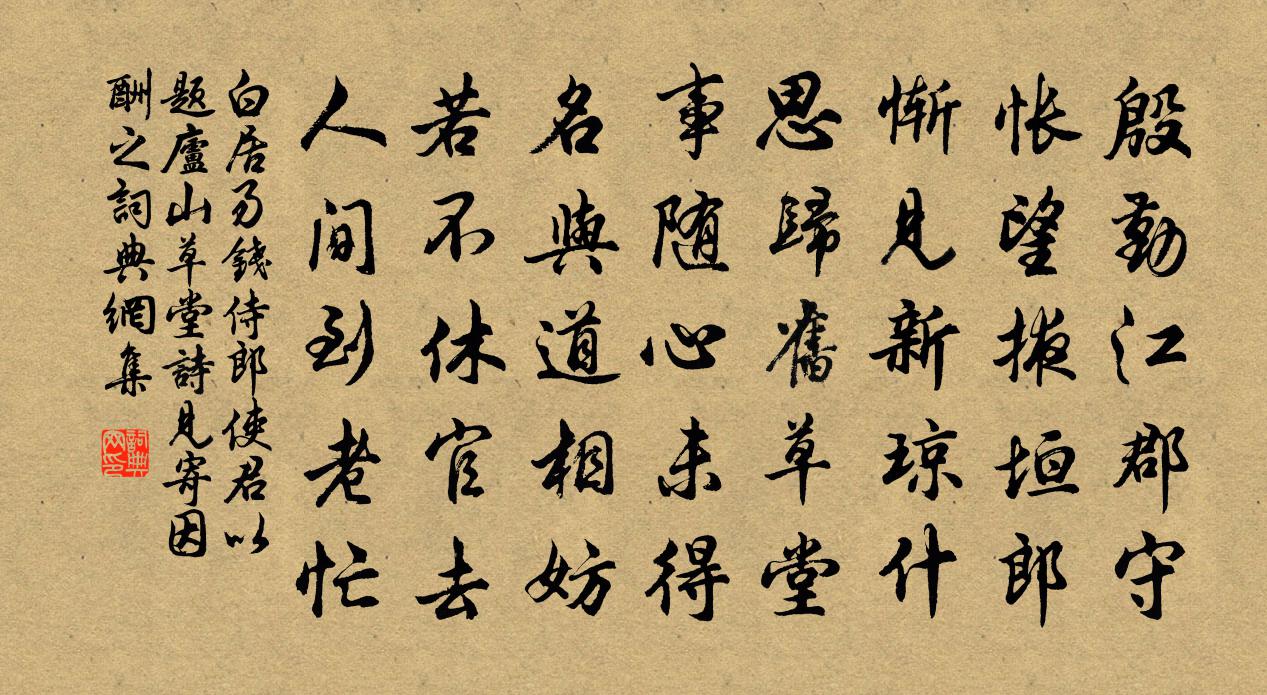 殷勤江郡守
怅望掖垣郎
惭见新琼什
思歸舊草堂
事随心未得
名與道相妨
若不休官去
人间到老忙
白居易錢侍郎使君以
题廬山草堂詩见寄因
酬之詞典網集
詞典网印